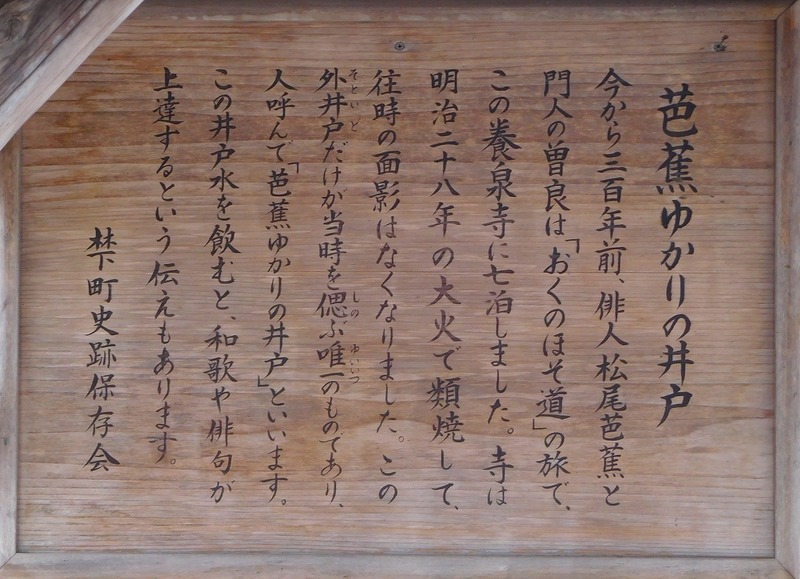 芭蕉ゆかりの井戸
今から三百年前、俳人松尾芭蕉と
門人の曽良は「おくのほそ道」の旅で、
この養泉寺に七泊しました。寺は
明治二十八年の大火で類焼して、
往時の面影はなくなりました。この
外井戸だけが当時を偲ぶ唯一のものであり、
そといど
しの
ゆいいつ
人呼んで「芭蕉ゆかりの井戸」といいます。
この井戸水を飲むと、和歌や俳句が
上達するという伝えもあります。
梺町史跡保存会